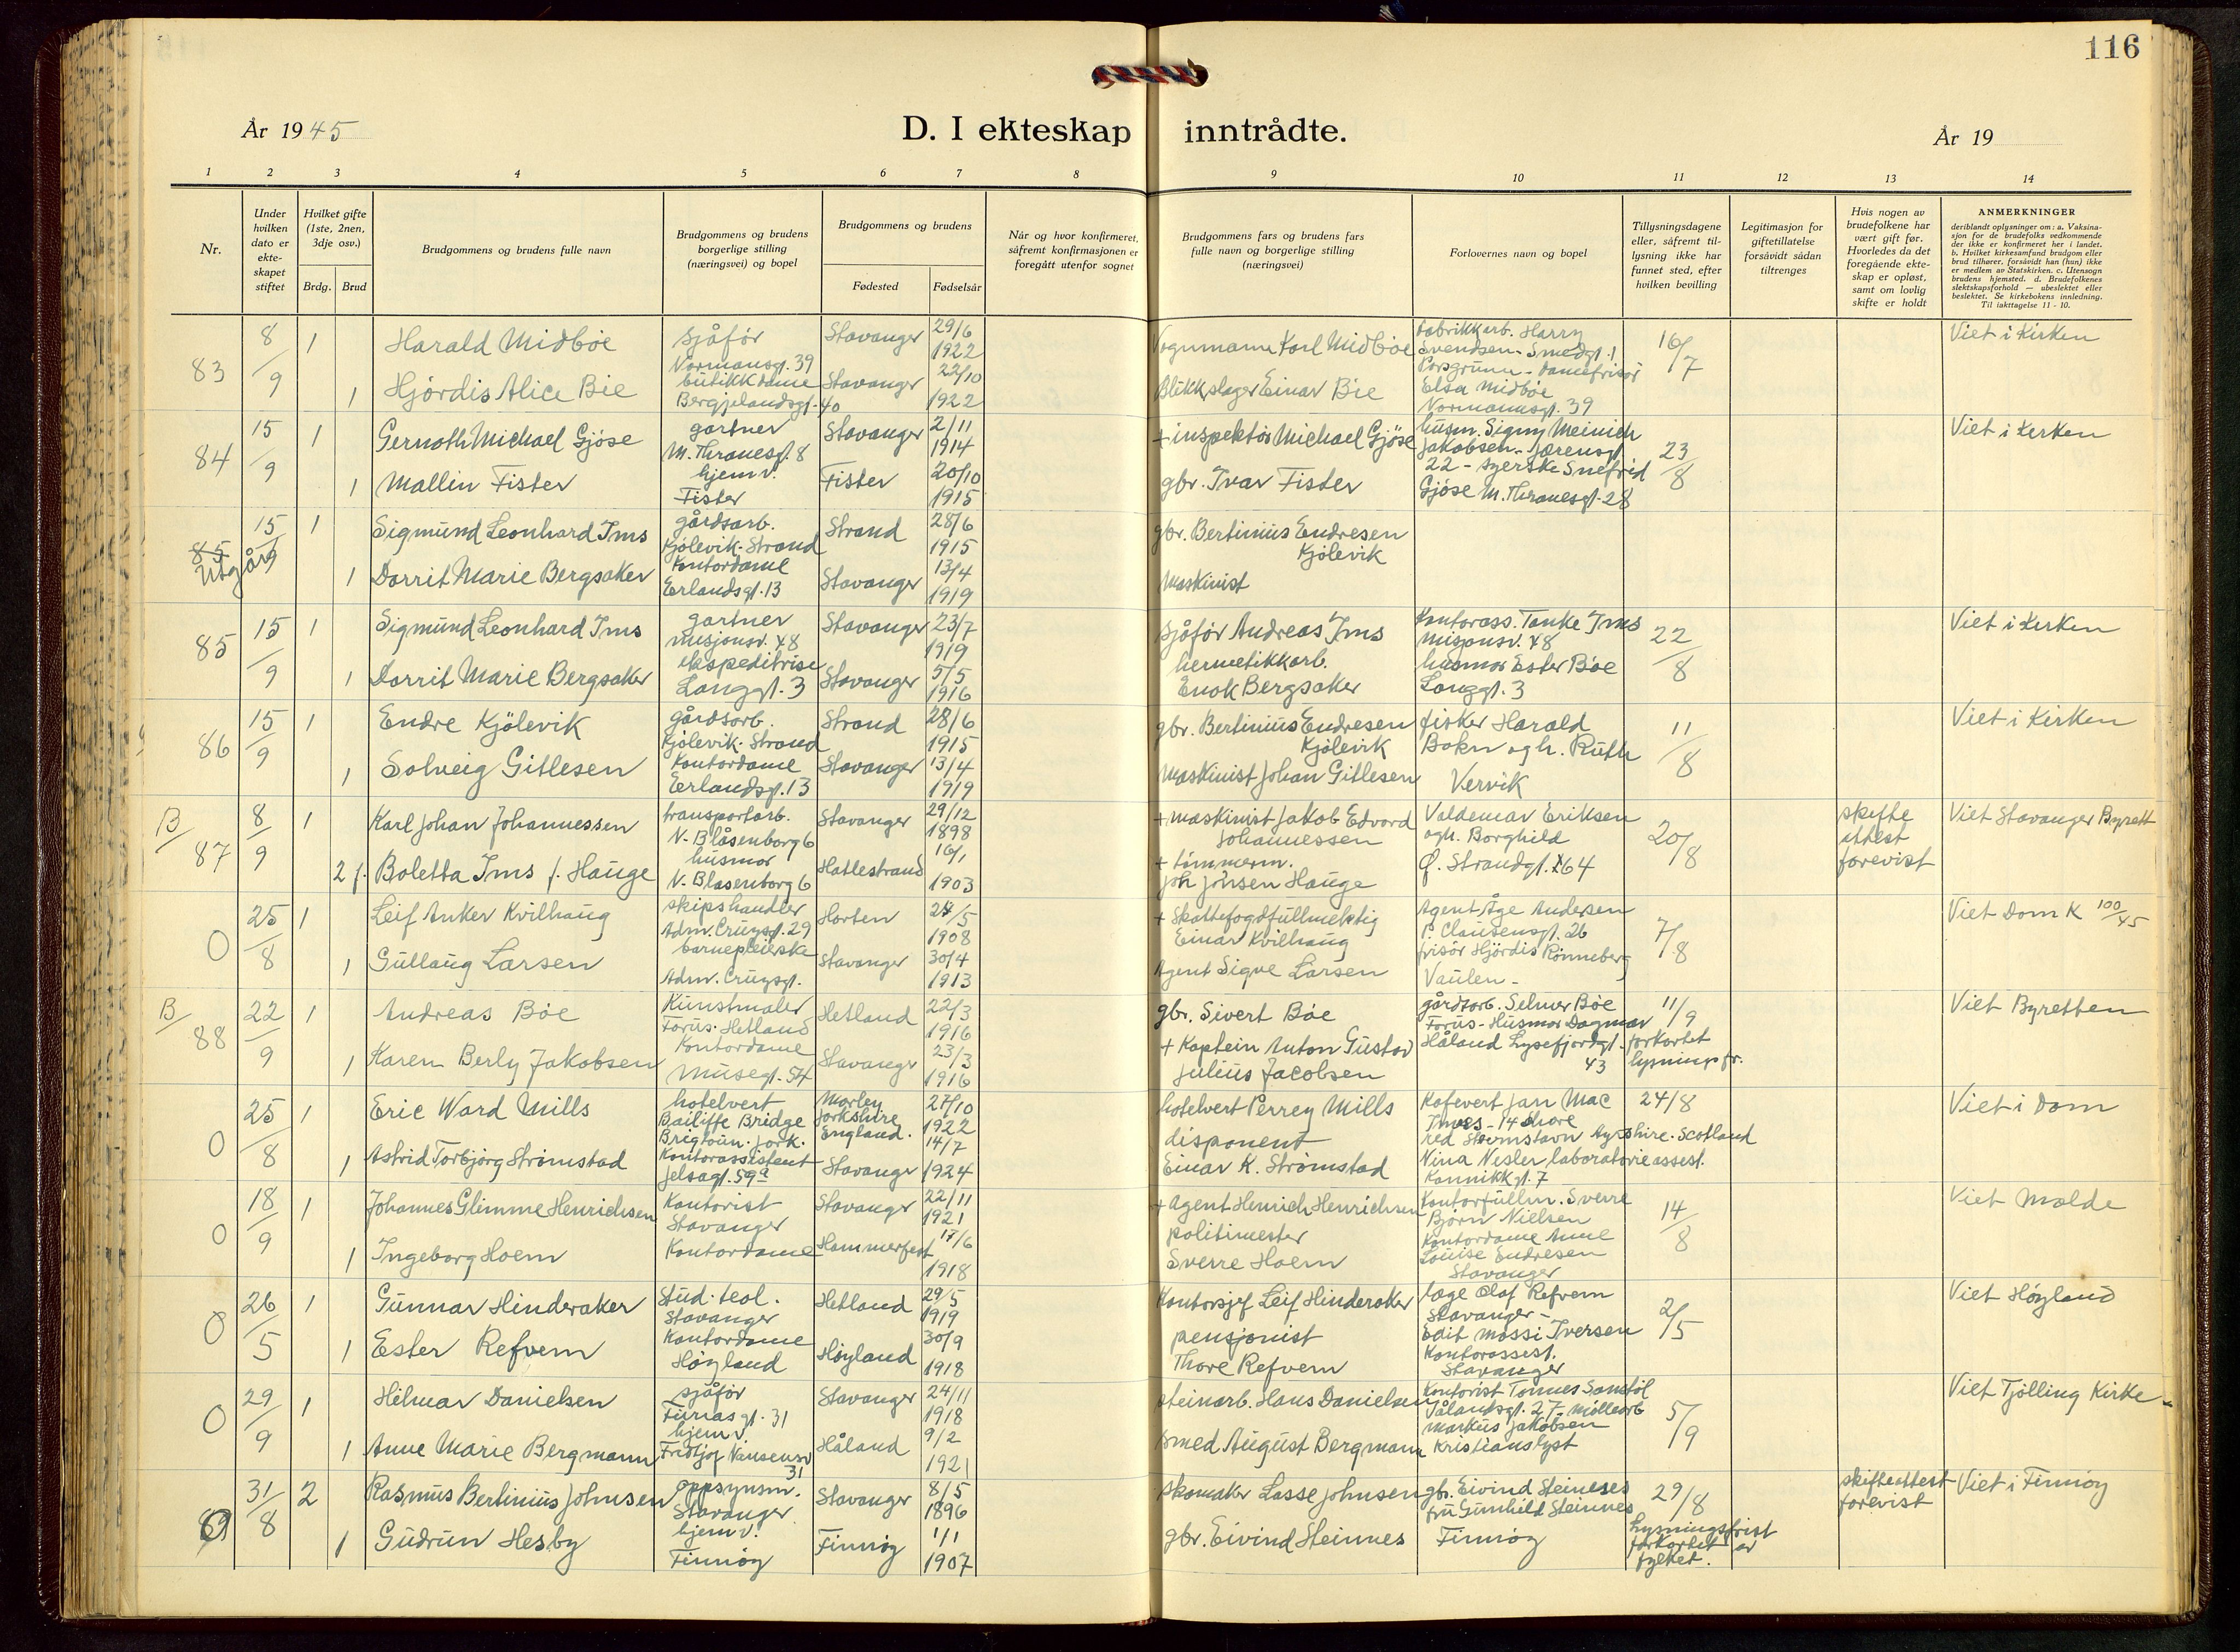 116
År 1945
D. I ekteskap inntrådte.
År 19
1 2 3 4 5 6 7 8 9 10 11 12 13 14
Nr.
Under hvilken dato er ekte-skapet stiftet
Hvilket gifte (1ste, 2nen, 3dje osv.)
Brdg. Brud
Brudgommens og brudens fulle navn
Brudgommens og brudens borgerlige stilling (næringsvei) og bopel
Brudgommens og brudens
Fødested Fødselsår
Når og hvor konfirmeret, såfremt konfirmasjonen er foregått utenfor sognet
Brudgommens fars og brudens fars fulle navn og borgerlige stilling (næringsvei)
Forlovernes navn og bopel
Tillysningsdagene eller, såfremt til-lysning ikke har funnet sted, efter hvilken bevilling
Legitimasjon for giftetillatelse forsåvidt sådan tiltrenges
Hvis nogen av brudefolkene har vært gift før. Hvorledes da det foregående ekte-skap er opløst, samt om lovlig skifte er holdt
ANMERKNINGER
deriblandt oplysninger om: a. Vaksina-sjon for de brudefolks vedkommende der ikke er konfirmeret her i landet. b. Hvilket kirkesamfund brudgom eller brud tilhører, forsåvidt han (hun) ikke er medlem av Statskirken. c. Utensogn brudens hjemsted. d. Brudefolkenes slektskapsforhold — ubeslektet eller beslektet. Se kirkebokens innledning. Til iakttagelse 11 - 10.
83 8/9 1 Harald Midbøe sjåfør Normansg. 39 Stavanger 29/6 1922 Vognmann Karl Midbøe
1 Hjördis Alice Bie butikkdame Bergjelandsgt. 40 Stavanger 22/10 1922 Blikkslager Einar Bie
fabrikkarb. Harry Svendsen - Smedgt. 1 Porsgrunn - Damefrisör Elsa Midbøe Normannsgt. 39
16/7 Viet i Kirken
84 15/9 1 Gernoth Michael Gjöse gartner M. Thranesgt. 8 Stavanger 2/11 1914 + inspektör Michael Gjöse
1 Mallin Fister hjemv. Fister Fister 20/10 1915 gbr. Ivar Fister
husm. Signy Meinich Jakobsen - Jørensgt 22 - syerske Snefrid Gjöse M. Thranesgt. 28
23/8 Viet i Kirken
85 Utgår 15/9 1 Sigmund Leonhard Ims gårdsarb. Kjölevik. Strand Strand 28/6 1915 gbr. Bertinius Endresen Kjölevik
1 Dorrit Marie Bergsaker Kontordame Erlandsgt. 13 Stavanger 13/4 1919 Maskinist
85 15/9 1 Sigmund Leonhard Ims gartner misjonsv. 48 Stavanger 23/7 1919 sjåför Andreas Ims
1 Dorrit Marie Bergsaker ekspeditrise Langgt. 3 Stavanger 5/5 1916 hermetikkarb. Enok Bergsaker
Kontorass. Tanke Ims Misjonsv. 48 husmor Ester Bøe Langgt. 3
22/8 Viet i Kirken
86 15/9 1 Endre Kjölevik gårdsarb. Kjölevik. Strand Strand 28/6 1915 gbr. Bertinius Endresen Kjölevik
1 Solveig Gitlesen Kontordame Erlandsgt. 13 Stavanger 13/4 1919 Maskinist Johan Gitlesen
fisker Harald Bokn og h. Ruth Vervik
11/8 Viet i Kirken
B/ 87 8/9 1 Karl Johan Johannessen transportarb. N. Blåsenborg 6 Stavanger 29/12 1898 + maskinist Jakob Edvard Johannessen
2 f. Boletta Ims f. Hauge husmor N. Blåsenborg 6 Hatlestrand 16/1 1903 + tömmerm. Joh Johnsen Hauge
Valdemar Eriksen og h. Borghild Ø. Strandgt. 164
20/8 skifte attest forevist Viet Stavanger Byrett
0 25/8 1 Leif Anker Kvilhaug skipshandler Adm. Cruysgt. 29 Horten 28/5 1908 + Skattefogdfullmektig Einar Kvilhaug
1 Gullaug Larsen barnepleierske Adm. Cruysgt. Stavanger 30/4 1913 Agent Sigve Larsen
Agent Åge Andersen P. Clausensgt. 26 frisör Hjördis Rönneberg Vaulen -
7/8 Viet Dom K 100/45
B/ 88 22/9 1 Andreas Böe Kunstmaler Forus. Hetland Hetland 22/3 1916 gbr. Sivert Böe
1 Karen Berly Jakobsen Kontordame Musegt. 54 Stavanger 23/3 1916 + Kaptein Anton Gustav Julius Jacobsen
gårdsarb. Selmer Böe Forus - Husmor Dagmar Håland Lysefjordgt. 43
11/9 forkortet lysningsfr. Viet Byretten
0 25/8 1 Eric Ward Mills hotelvert Bailiffe Bridge Brighoun. York. Morley Yorkshire England. 27/10 1922 hotelvert Perrey Mills
1 Astrid Torbjörg Strömstad Kontorassistent Jelsagt. 59a Stavanger 14/7 1924 disponent Einar K. Strömstad
Kafevert Jan Mac - 14 Shore Ayrshire. Scotland Nina Nesler laboratorieassest. Kannikkgt. 7
24/8 Viet i Dom
0 18/9 1 Johannes Glimme Henrichsen Kontorist Stavanger Stavanger 22/11 1921 + Agent Henrich Henrichsen
1 Ingeborg Hoem Kontordame Hammerfest 17/6 1918 politimester Sverre Hoem
Kontorfullm. Sverre Björn Nielsen Kontordame Anne Louise Endresen Stavanger
14/8 Viet Molde
0 26/5 1 Gunnar Hinderaker Stud. teol. Stavanger Hetland 29/5 1919 Kontorsjef Leif Hinderaker
1 Ester Refvem Kontordame Høyland Høyland 30/9 1918 pensjonist Thore Refvem
læge Olaf Refvem Stavanger - Edit Mossi Iversen Kontorassest. Stavanger
2/5 Viet Høyland
0 29/9 1 Hilmar Danielsen sjåför Furrasgt. 31 Stavanger 24/11 1918 steinarb. Hans Danielsen
1 Anne Marie Bergmann hjemv. Fridtjof Nansensv 31 Håland 9/2 1921 smed August Bergmann
Kontorist Tönnes Sandföl Vålandsgt. 27. möllearb Markus Jakobsen Kristianslyst
5/9 Viet Tjölling Kirke -
0 31/8 2 Rasmus Bertinius Johnsen oppsynsm. Stavanger Stavanger 8/5 1896 skomaker Lasse Johnsen
1 Gudrun Hesby hjemv. Finnöy Finnöy 1/1 1907 gbr. Eivind Steinnes
gbr. Eivind Steinnes fru Gunhild Steinnes Finnöy
29/8 Lysningsfrist forkortet av fylket. skifteattest forevist Viet i Finnöy